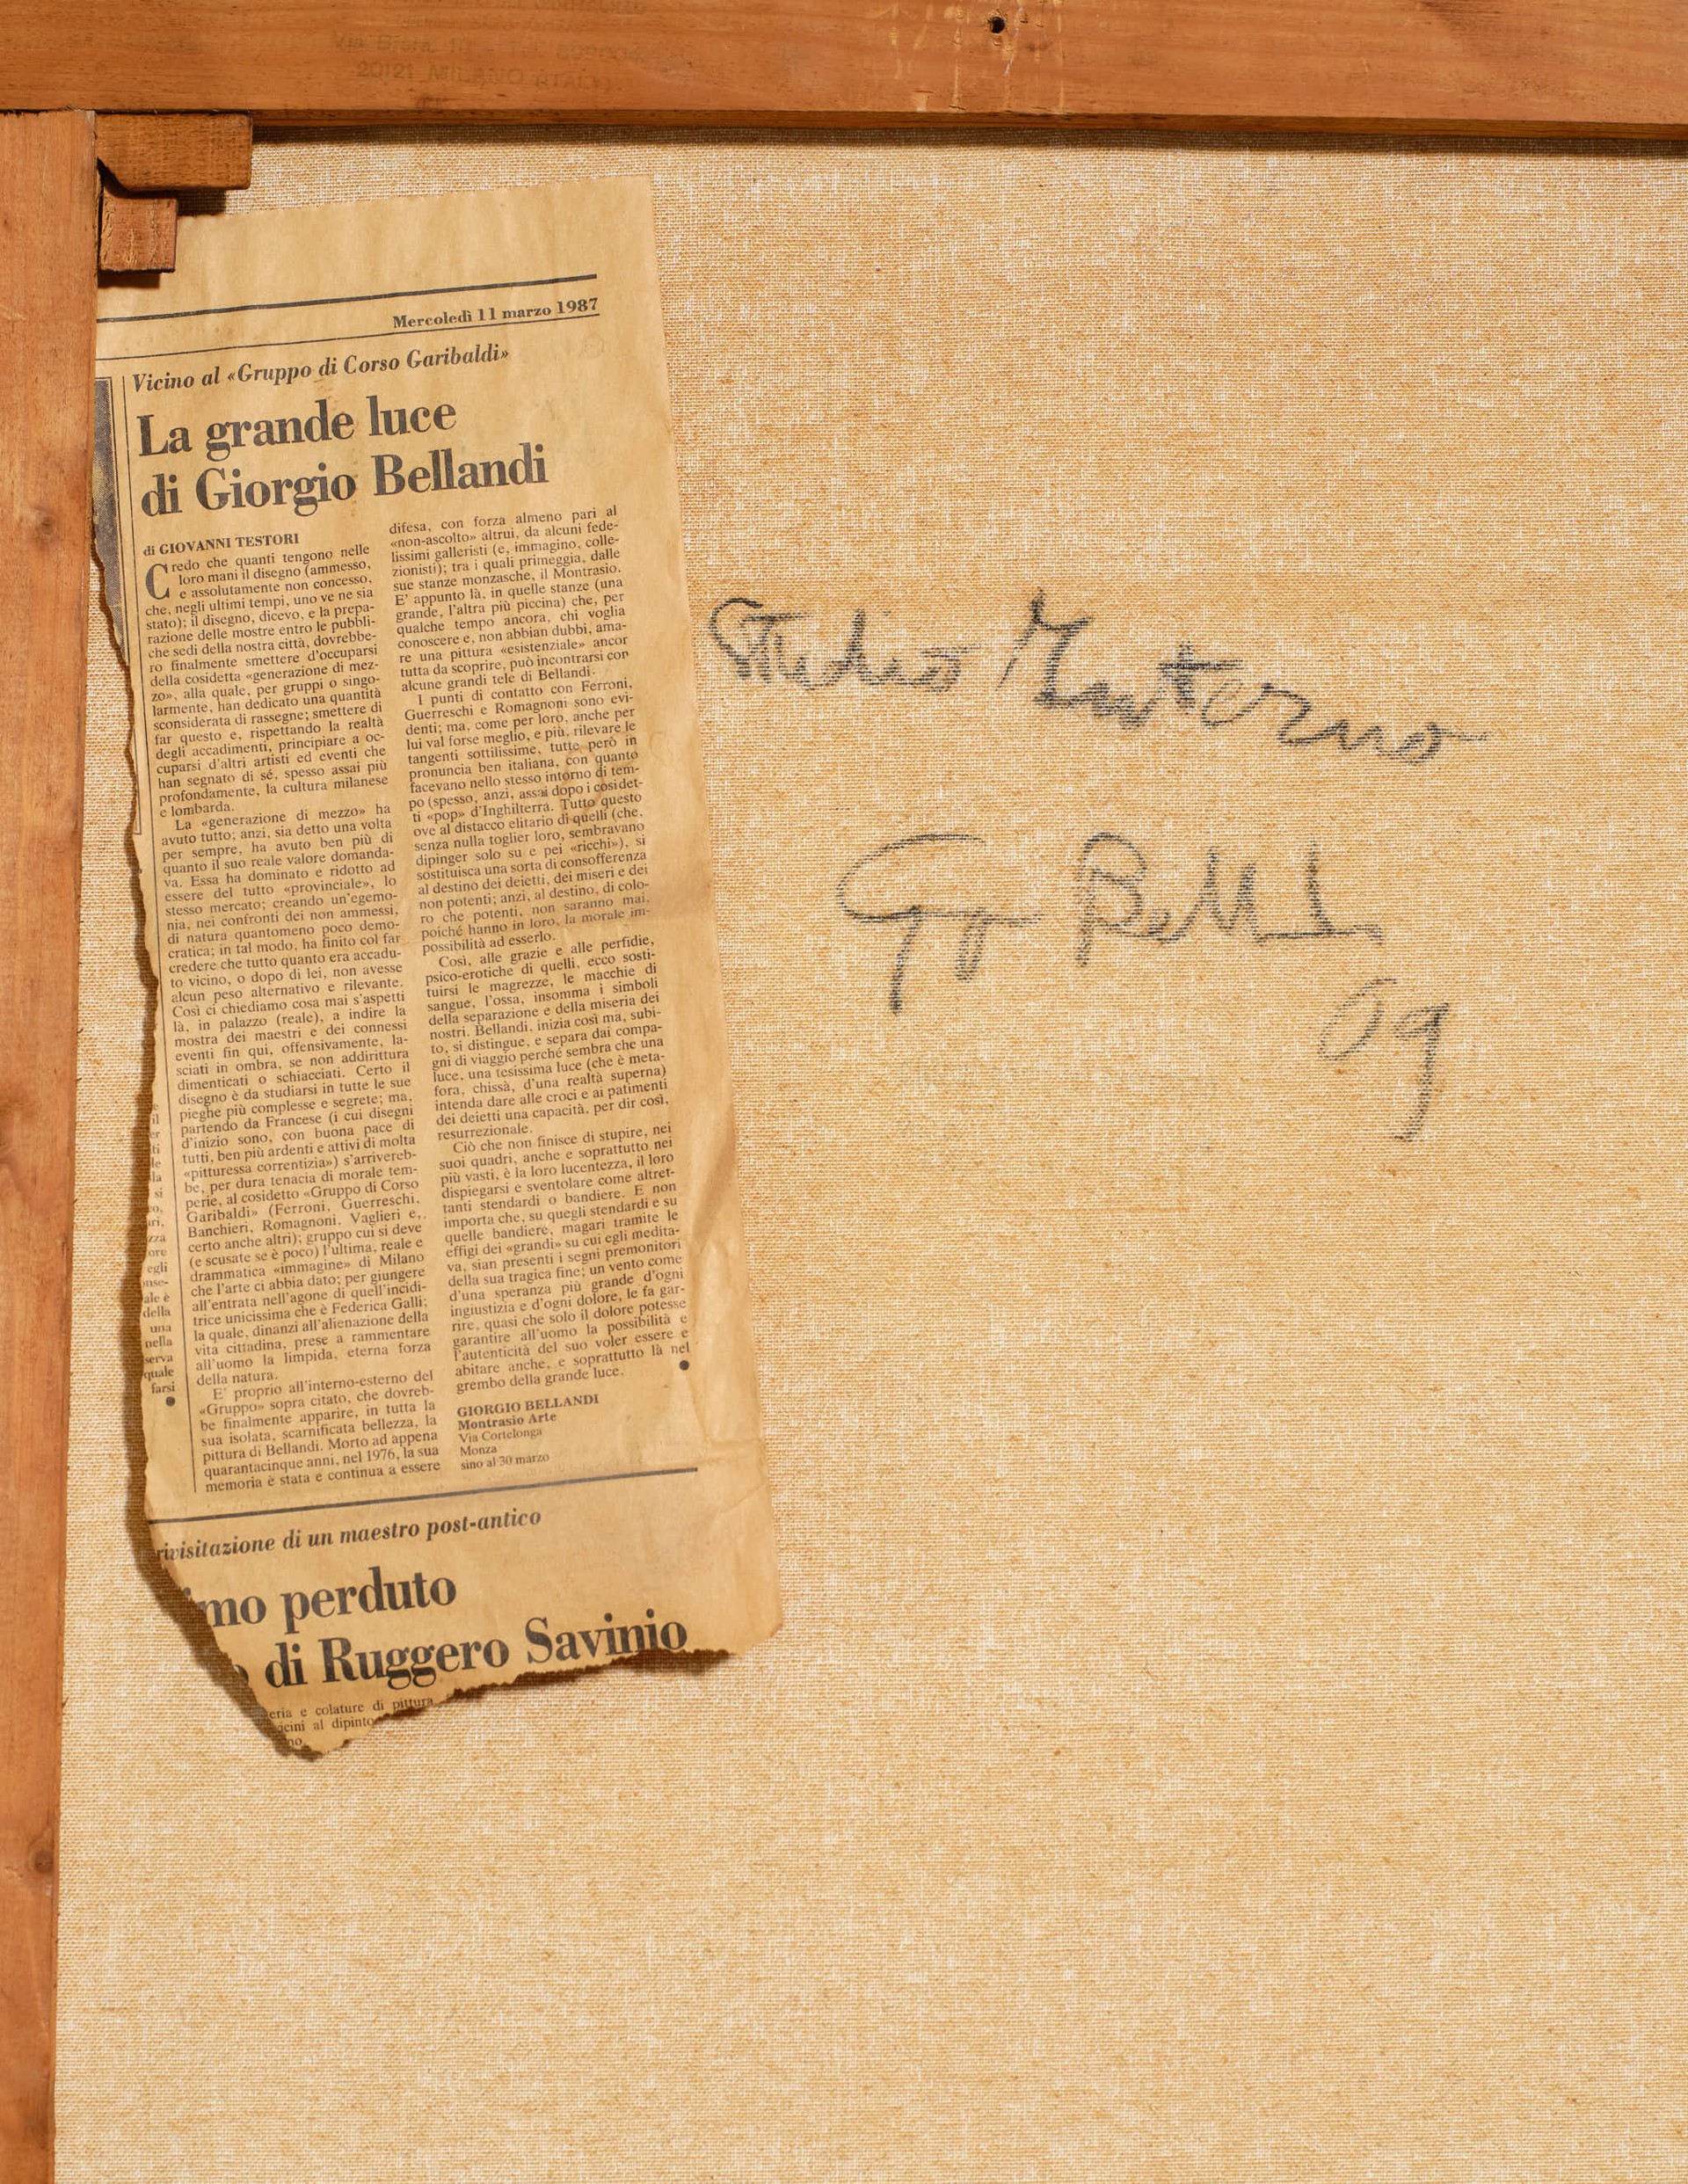 20121 MILANO
Mercoledì 11 marzo 1987
Vicino al «Gruppo di Corso Garibaldi»
La grande luce
di Giorgio Bellandi
di GIOVANNI TESTORI
Credo che quanti tengono nelle
loro mani il disegno (ammesso,
e assolutamente non concesso,
che, negli ultimi tempi, uno ve ne sia
stato); il disegno, dicevo, e la prepa-
razione delle mostre entro le pubbli-
che sedi della nostra città, dovrebbe-
ro finalmente smettere d'occuparsi
della cosidetta «generazione di mez-
zo», alla quale, per gruppi o singo-
larmente, han dedicato una quantità
sconsiderata di rassegne; smettere di
far questo e, rispettando la realtà
degli accadimenti, principiare a oc-
cuparsi d'altri artisti ed eventi che
han segnato di sé, spesso assai più
profondamente, la cultura milanese
e lombarda.
La «generazione di mezzo» ha
avuto tutto; anzi, sia detto una volta
per sempre, ha avuto ben più di
quanto il suo reale valore domanda-
va. Essa ha dominato e ridotto ad
essere del tutto «provinciale», lo
stesso mercato; creando un'egemo-
nia, nei confronti dei non ammessi,
di natura quantomeno poco demo-
cratica; in tal modo, ha finito col far
credere che tutto quanto era accadu-
to vicino, o dopo di lei, non avesse
alcun peso alternativo e rilevante.
Così ci chiediamo cosa mai s'aspetti
là, in palazzo (reale), a indire la
mostra dei maestri e dei connessi
eventi fin qui, offensivamente, la-
sciati in ombra, se non addirittura
dimenticati o schiacciati. Certo il
disegno è da studiarsi in tutte le sue
pieghe più complesse e segrete; ma,
partendo da Francese (i cui disegni
d'inizio sono, con buona pace di
tutti, ben più ardenti e attivi di molta
«pitturessa correntizia») s'arrivereb-
be, per dura tenacia di morale tem-
perie, al cosidetto «Gruppo di Corso
Garibaldi» (Ferroni, Guerreschi,
Banchieri, Romagnoni, Vaglieri e,
certo anche altri); gruppo cui si deve
(e scusate se è poco) l'ultima, reale e
drammatica «immagine» di Milano
che l'arte ci abbia dato; per giungere
all'entrata nell'agone di quell'incidi-
trice unicissima che è Federica Galli;
la quale, dinanzi all'alienazione della
vita cittadina, prese a rammentare
all'uomo la limpida, eterna forza
della natura.
E' proprio all'interno-esterno del
«Gruppo» sopra citato, che dovreb-
be finalmente apparire, in tutta la
sua isolata, scarnificata bellezza, la
pittura di Bellandi. Morto ad appena
quarantacinque anni, nel 1976, la sua
memoria è stata e continua a essere
difesa, con forza almeno pari al
«non-ascolto» altrui, da alcuni fede-
lissimi galleristi (e, immagino, colle-
zionisti); tra i quali primeggia, dalle
sue stanze monzasche, il Montrasio.
E' appunto là, in quelle stanze (una
grande, l'altra più piccina) che, per
qualche tempo ancora, chi voglia
conoscere e, non abbian dubbi, ama-
re una pittura «esistenziale» ancor
tutta da scoprire, può incontrarsi con
alcune grandi tele di Bellandi.
I punti di contatto con Ferroni,
Guerreschi e Romagnoni sono evi-
denti; ma, come per loro, anche per
lui val forse meglio, e più, rilevare le
tangenti sottilissime, tutte però in
pronuncia ben italiana, con quanto
facevano nello stesso intorno di tem-
po (spesso, anzi, assai dopo i cosidet-
ti «pop» d'Inghilterra. Tutto questo
ove al distacco elitario di quelli (che,
senza nulla toglier loro, sembravano
dipinger solo su e pei «ricchi»), si
sostituisca una sorta di consofferenza
al destino dei deietti, dei miseri e dei
non potenti; anzi, al destino, di colo-
ro che potenti, non saranno mai,
poiché hanno in loro, la morale im-
possibilità ad esserlo.
Così, alle grazie e alle perfidie,
psico-erotiche di quelli, ecco sosti-
tuirsi le magrezze, le macchie di
sangue, l'ossa, insomma i simboli
della separazione e della miseria dei
nostri. Bellandi, inizia così ma, subi-
to, si distingue, e separa dai compa-
gni di viaggio perché sembra che una
luce, una tesissima luce (che è meta-
fora, chissà, d'una realtà superna)
intenda dare alle croci e ai patimenti
dei deietti una capacità, per dir così,
resurrezionale.
Ciò che non finisce di stupire, nei
suoi quadri, anche e soprattutto nei
più vasti, è la loro lucentezza, il loro
dispiegarsi e sventolare come altret-
tanti stendardi o bandiere. E non
importa che, su quegli stendardi e su
quelle bandiere, magari tramite le
effigi dei «grandi» su cui egli medita-
va, sian presenti i segni premonitori
della sua tragica fine; un vento come
d'una speranza più grande d'ogni
ingiustizia e d'ogni dolore, le fa gar-
rire, quasi che solo il dolore potesse
garantire all'uomo la possibilità e
l'autenticità del suo voler essere e
abitare anche, e soprattutto là nel
grembo della grande luce.
GIORGIO BELLANDI
Montrasio Arte
Via Cortelonga
Monza
sino al 30 marzo
il
er
ti
le
la
si
ro,
ari,
zza
ore
egli
onse-
ale è
della
una
nella
serva
quale
farsi
rivisitazione di un maestro post-antico
imo perduto
di Ruggero Savinio
eria e colature di pittura
icini al dipinto
no
Studio Interno
69